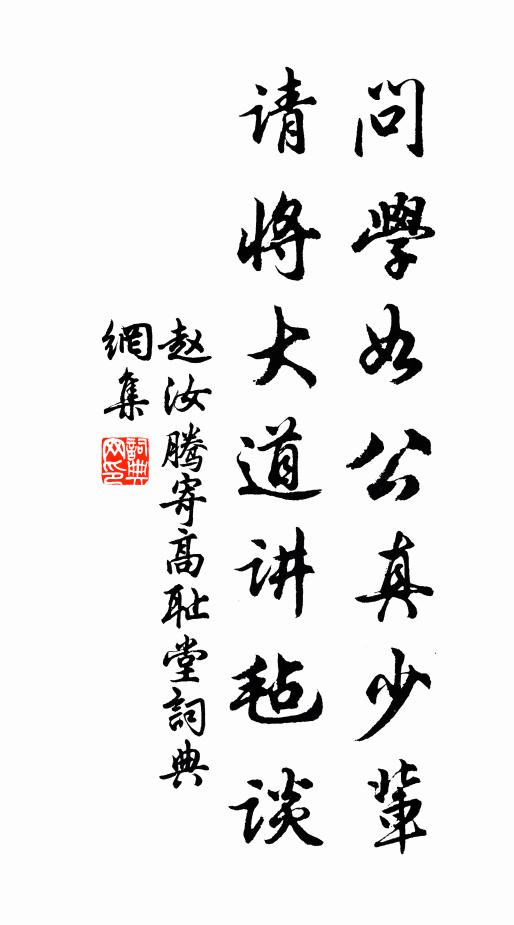 問學如公真少輩
请将大道讲毡谈
赵汝腾寄高耻堂詞典
網集
詞典
网印